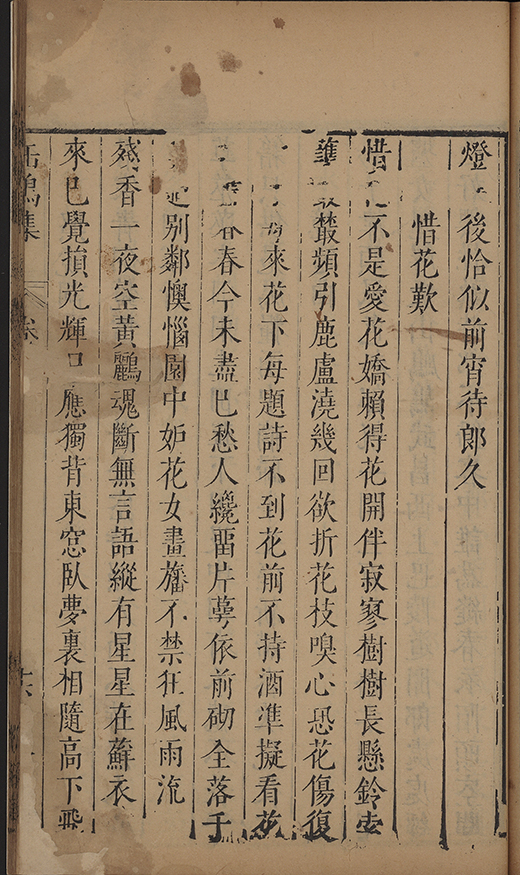 燈後恰似前宵待郎久
惜花歎
惜不是愛花嬌賴得花開伴寂寥樹樹長懸鈴索
護叢叢頻引鹿盧澆幾回欲折花枝嗅心恐花傷復
來花下每題詩不到花前不持酒準擬看花
春春今未盡已愁人纔留片萼依前砌全落千
近別鄰懊惱園中妒花女畫旛不禁狂風雨流
殘香一夜空黃鸝魂斷無言語縱有星星在蘚衣
來已覺損光輝應獨背東窓臥夢裏相隨高下飛
缶鳴集
卷
十六